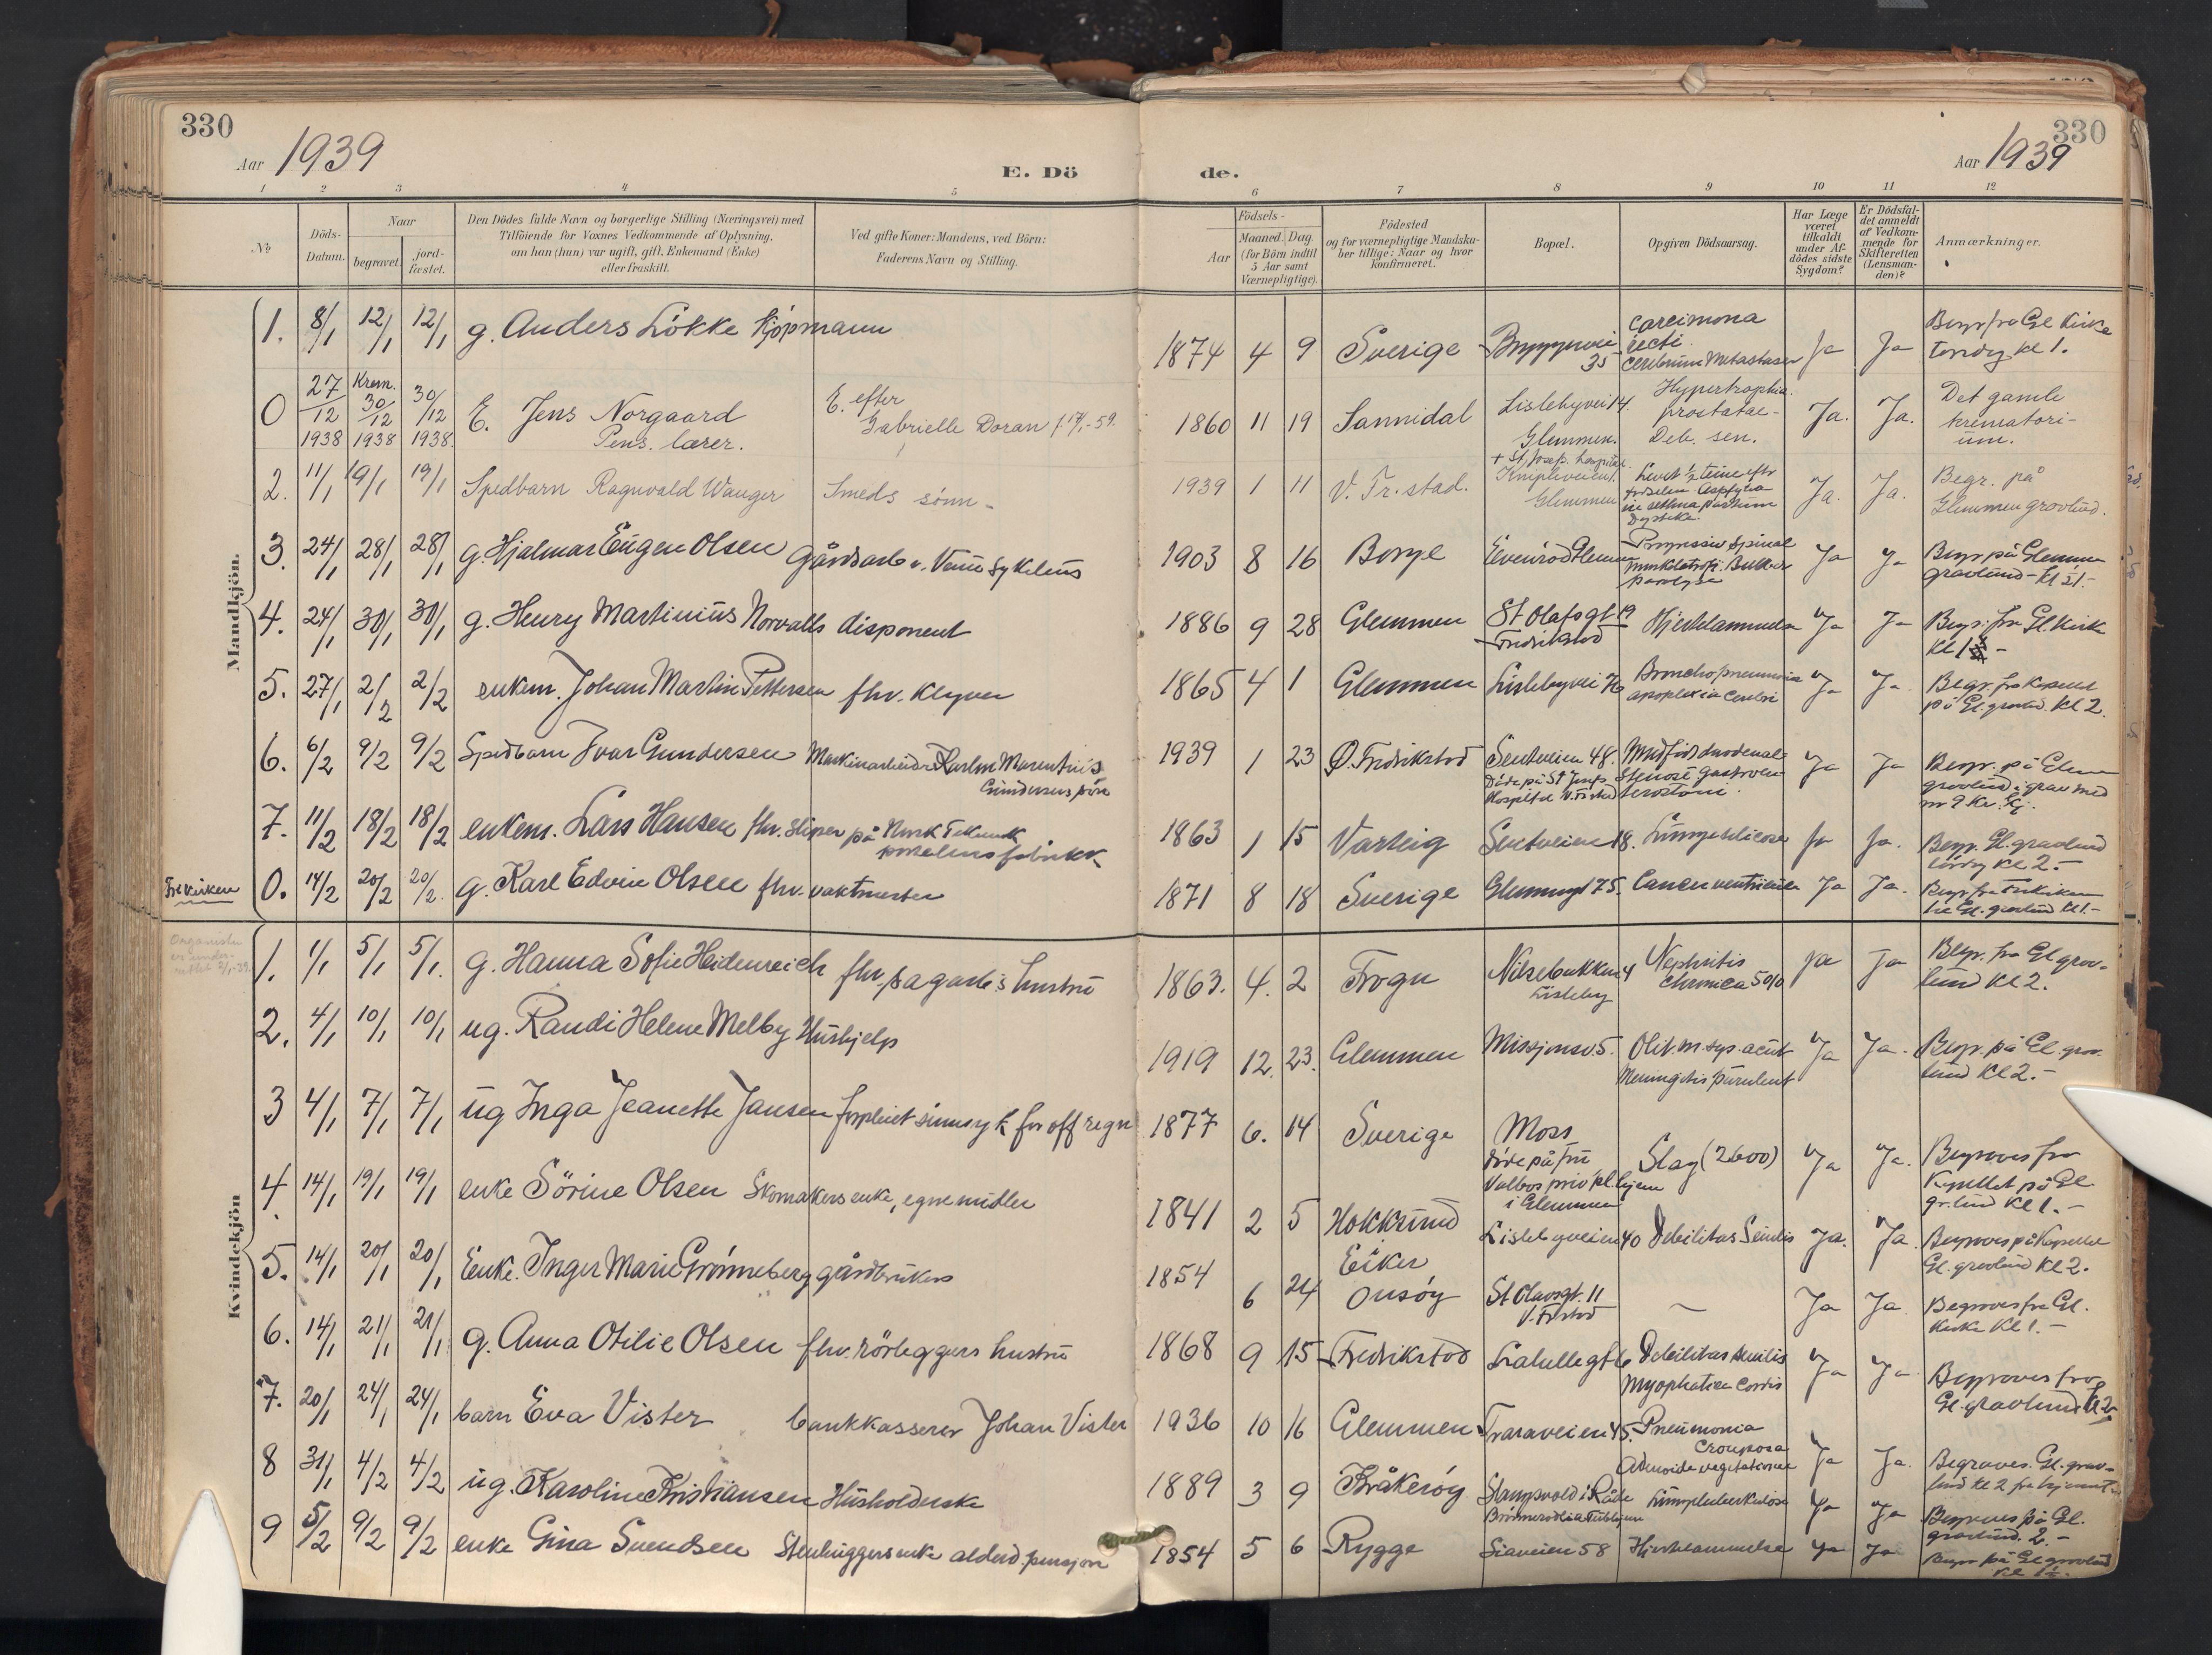 330
Aar 1939
E. Dö
1 2 3 4 5
№
Döds-Datum.
Naar
begravet.
jord-fæstet.
Den Dödes fulde Navn og borgerlige Stilling (Næringsvei) med
Tilföiende for Voxnes Vedkommende af Oplysning,
om han (hun) var ugift, gift, Enkemand (Enke)
eller fraskilt.
Ved gifte Koner: Mandens, ved Börn:
Faderens Navn og Stilling.
330
Aar 1939
de.
6 7 8 9 10 11 12
Födsels-
Aar
Maaned. Dag.
(for Börn indtil
5 Aar samt
Værnepligtige).
Födested
og for værnepligtige Mandska-
ber tillige: Naar og hvor
konfirmeret.
Bopæl.
Opgiven Dödsaarsag.
Har Læge
været
tilkaldt
under Af-
dödes sidste
Sygdom?
Er Dödsfal-
det anmeldt
af Vedkom-
mende for
Skifteretten
(Lensman-
den)?
Anmærkninger.
Mandkjön.
1. 8/1 12/1 12/1 g. Anders Lökke kjöpmann 1874 4 9 Sverige 35 Ja Ja
Begr fra Gl Kirke
kl 1.
0 27/12 1938 Krem. 30/12 1938 30/12 1938. E. Jens Norgaard
Pens. lærer.
E. efter
Gabrielle Doran
1860 11 19 Sannidal Lislebyvei 14.
Glemmen.
Hypertrophia
prostatae-
Deb. sen.
Ja. Ja.
Det gamle
krematori-
um.
2. 11/1 19/1 19/1 Spedbarn Ragnvald Wanger Smeds sönn - 1939 1 11 V. Fr.stad.
+ St. Josefs hospital.
Glemmen
Ja. Ja.
Begr. på
Glemmen gravlund.
3. 24/1 28/1 28/1 g. Hjalmar Eugen Olsen 1903 8 16 Borge
Progressiv Spinal
Ja Ja
Begr på Glemmen
gravlund -
4. 24/1 30/1 30/1 g. Henry Martinius Norvalls disponent 1886 9 28 Glemmen St Olafsgt 19
Fredrikstad
Hjertelammelse Ja Ja
Begr. fra Gl. Kirke
5. 27/1 2/2 2/2 enkem. Johan Martin Pettersen fhv. 1865 4 1 Glemmen Lislebyvei
Bronchopneumonia
apoplexia cerebri
Ja Ja
Begr. fra Kapellet
på Gl. gravlund. Kl 2.
6. 6/2 9/2 9/2 Spedbarn Ivar Gundersen
Gundersens sön
1939 1 23 Ø. Fredrikstad Senterveien 48.
Döde på St Josefs
Hospital V. Fr.stad
Ja Ja
Begr. på Glem
gravlund i grav med
7. 11/2 18/2 18/2 enkem. Lars Hansen fhv. sliper på Norsk Teknisk
porselensfabrikk
1863 1 15 Varteig Ja Ja.
Begr. Gl. gravlund
lördag kl 2. -
Frikirken 0. 14/2 20/2 20/2. g. Karl Edvin Olsen fhv. vaktmester 1871 8 18 Sverige Glemmengt 75. Cancer ventriculi Ja Ja.
Begr. fra Frikirken
Kvindekjön
1. 1/1 5/1 5/1. g. Hanna Sofie Heidenreich fhv. sagarb's hustru 1863. 4. 2 Frogn Nilsebakken 4
Lisleby
Nephritis
chronica
Ja Ja
Begr. fra Gl grav-
lund Kl 2.
2. 4/1 10/1 10/1 ug. Randi Helene Melby Hushjelp 1919 12. 23. Glemmen Missjonsv 5.
Otit. m. sup. acut
Meningitis purulent
Ja Ja.
Begr. på Gl. grav.
lund Kl 2. -
3 4/1 7/1 7/1 ug Inga Jeanette Jansen forpleiet sinnsyk for off regn 1877 6. 14 Sverige Moss
döde på fru
Valbos priv pl. hjem
i Glemmen
Slag (2600) Ja Ja.
Begraves fra
Kapellet på Gl.
gr. lund Kl 1. -
4. 14/1 19/1 19/1 enke Sörine Olsen Skomakers enke, egne midler 1841 2 5 Hokksund
Eiker
Lislebyveien 40 Debilitas Senilis Ja. Ja.
Begraves på Kapellet
Gl. gravlund Kl 2.
5. 14/1 20/1 20/1 Enke. Inger Marie Grönneberg gårdbrukers 1854 6 24 Onsöy St Olavsgt. 11
V. Fr.stad
– Ja Ja
Begraves fra Gl.
Kirke Kl 1. -
6. 14/1 21/1 21/1 g. Anna Otilie Olsen fhv. rörleggers hustru 1868 9 15 Fredrikstad
Debilitas senilis
cordis
Ja Ja
Begraves fra
Gl. gravlund Kl 2
7. 20/1 24/1 24/1 barn Eva Vister bankkasserer Johan Vister 1936 10 16 Glemmen Traraveien 45.
Pneumonia
Crouposa
Adenoide vegetationer
Ja Ja.
Begraves. Gl. grav-
lund kl 2
8 31/1 4/2 4/2 ug. Karoline Kristiansen Husholderske 1889 3 9 Kråkeröy Lungetuberkulose Ja Ja
Begraves på Gl.
gravlund. 2. -
9 5/2 9/2 9/2 enke Gina Svendsen Stenhuggers enke alderd. pensjon 1854 5 6 Rygge Siaveien 58 Hjertelammelse Ja Ja
Begr på Gl gravlund